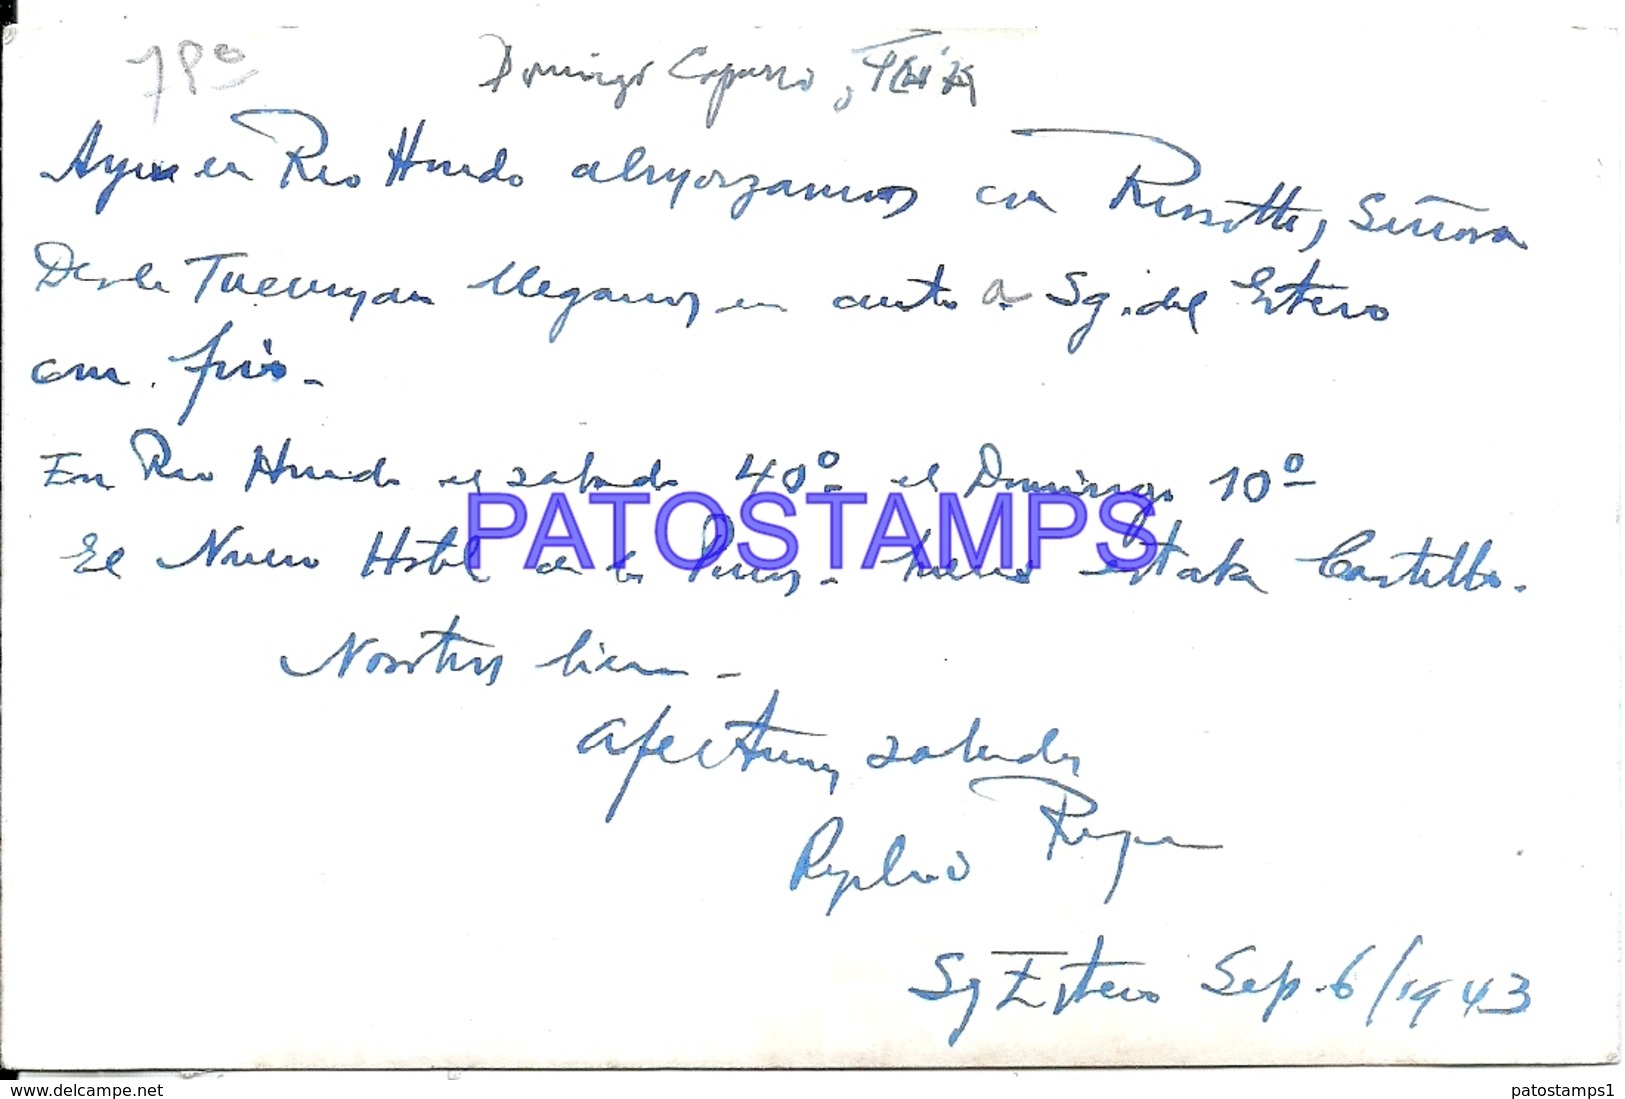 Domingo Caparró,
Ayer en Rio Hondo almorzamos con Rossotti, Señora
Desde Tucuman llegamos en auto a Sg. del Estero
con frio -
En Rio Hondo el sabado 40º el Domingo 10º
PATOSTAMPS
El Nuevo Hotel de los Pinos - Castillo.
Nosotros bien -
afectuosos saludos
Sg Estero Sep. 6/1943
www.delcampe.net
patostamps1